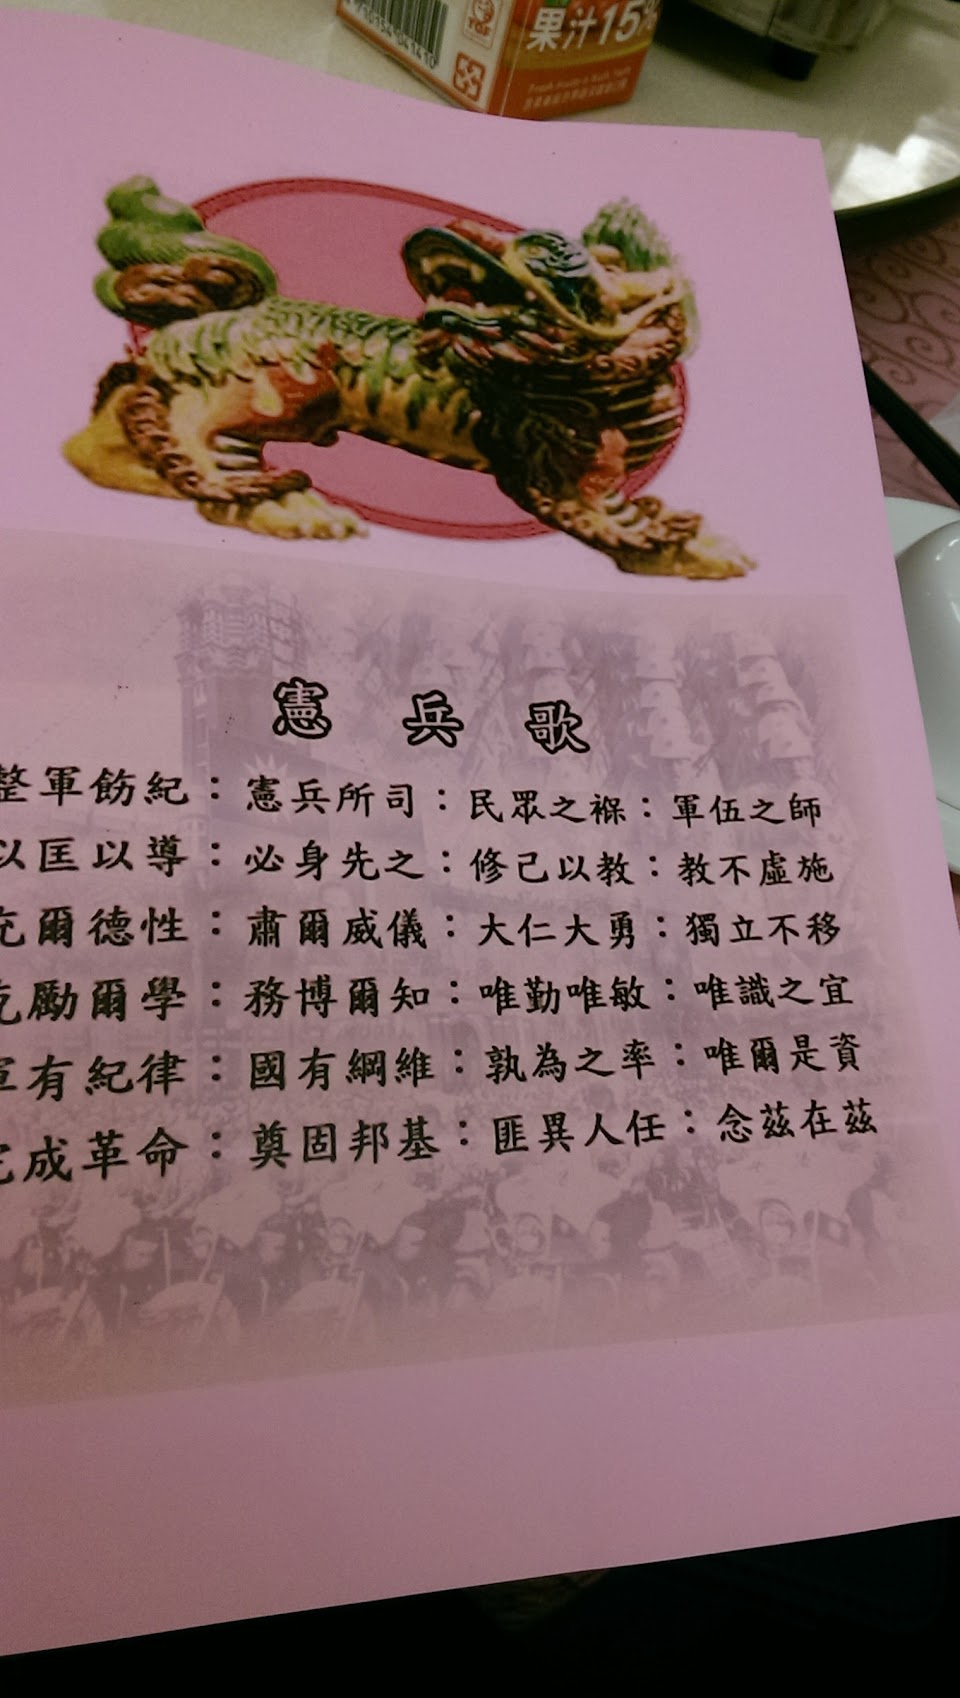 果汁15%
憲兵歌
整軍飭紀：憲兵所司：民眾之褓：軍伍之師
以匡以導：必身先之：修己以教：教不虛施
充爾德性：肅爾威儀：大仁大勇：獨立不移
勵爾學：務博爾知：唯勤唯敏：唯識之宜
軍有紀律：國有綱維：孰為之率：唯爾是資
完成革命：奠固邦基：匪異人任：念茲在茲